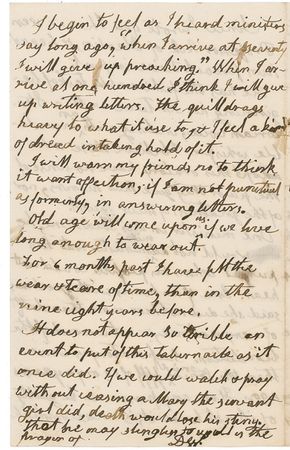 I begin to feel as I heard ministers
say long ago, "when I arrive at seventy
I will give up preaching." When I ar-
rive at one hundred I think I will give
up writing letters. the quill drags
heavy to what it use to & I feel a kind
of dread in taking hold of it.
I will warn my friends no to think
it want affection, if I am not punctual
as formorly, in answering letters.
"Old age will come upon us if we live
long anough to wear out."
For 6 months past I have felt the
wear & teare of time, than in the
nine eight years before.
It does not appear so terible an
event to put of this tabernacle as it
once did. If we would watch & pray
with out ceasing as Mary the servant
girl did, death would lose his sting.
That he may
is the
prayer of